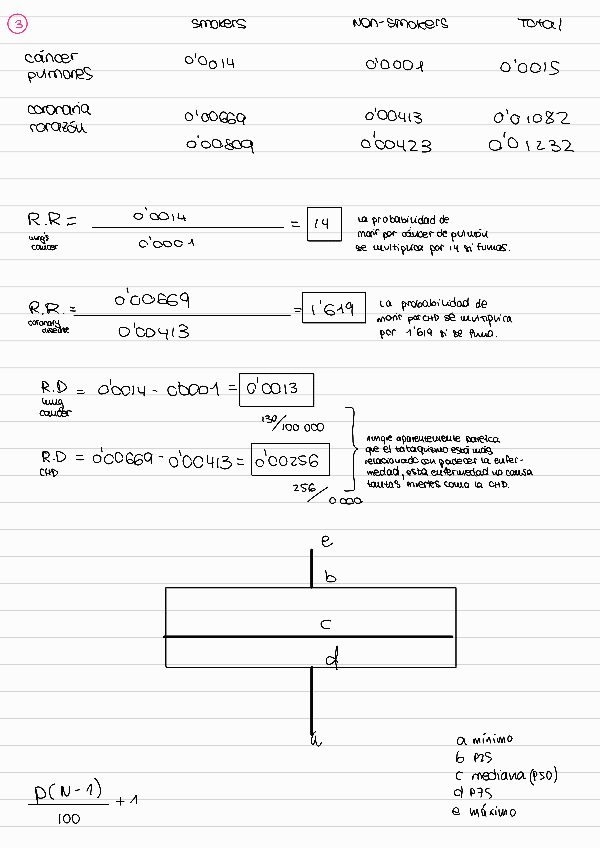 3
SMOKERS NON-SMOKERS TOTAL
cáncer pulmones 0'0014 0'0001 0'0015
coronaria corazón 0'00669 0'00413 0'01082
0'00809 0'00423 0'01232
R.R = 0'0014 / 0'0001 = 14
lung's cancer
La probabilidad de
morir por cáncer de pulmón
se multiplica por 14 si fumas.
R.R. = 0'00669 / 0'00413 = 1'619
coronary disease
La probabilidad de
morir por CHD se multiplica
por 1'619 si se fuma.
R.D = 0'0014 - 0'0001 = 0'0013
lung cancer
130/100 000
R.D = 0'00669 - 0'00413 = 0'00256
CHD
256/0 000
Aunque aparentemente parezca
que el tabaquismo está más
relacionado con padecer la enfer-
medad, esta enfermedad no causa
tantas muertes como la CHD.
e
b
c
d
a
a mínimo
b P25
c mediana (P50)
d P75
e máximo
p(N-1) / 100 + 1